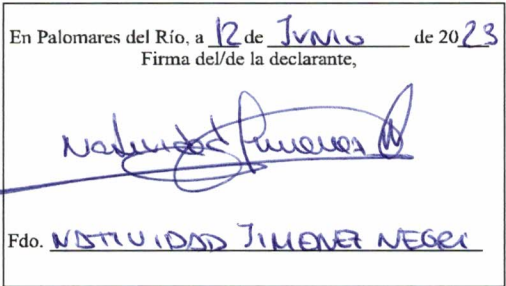 En Palomares del Río, a 12 de JUNIO de 2023
Firma del/de la declarante,
Natividad Jimenez N
Fdo. NATIVIDAD JIMENEZ NEGRI